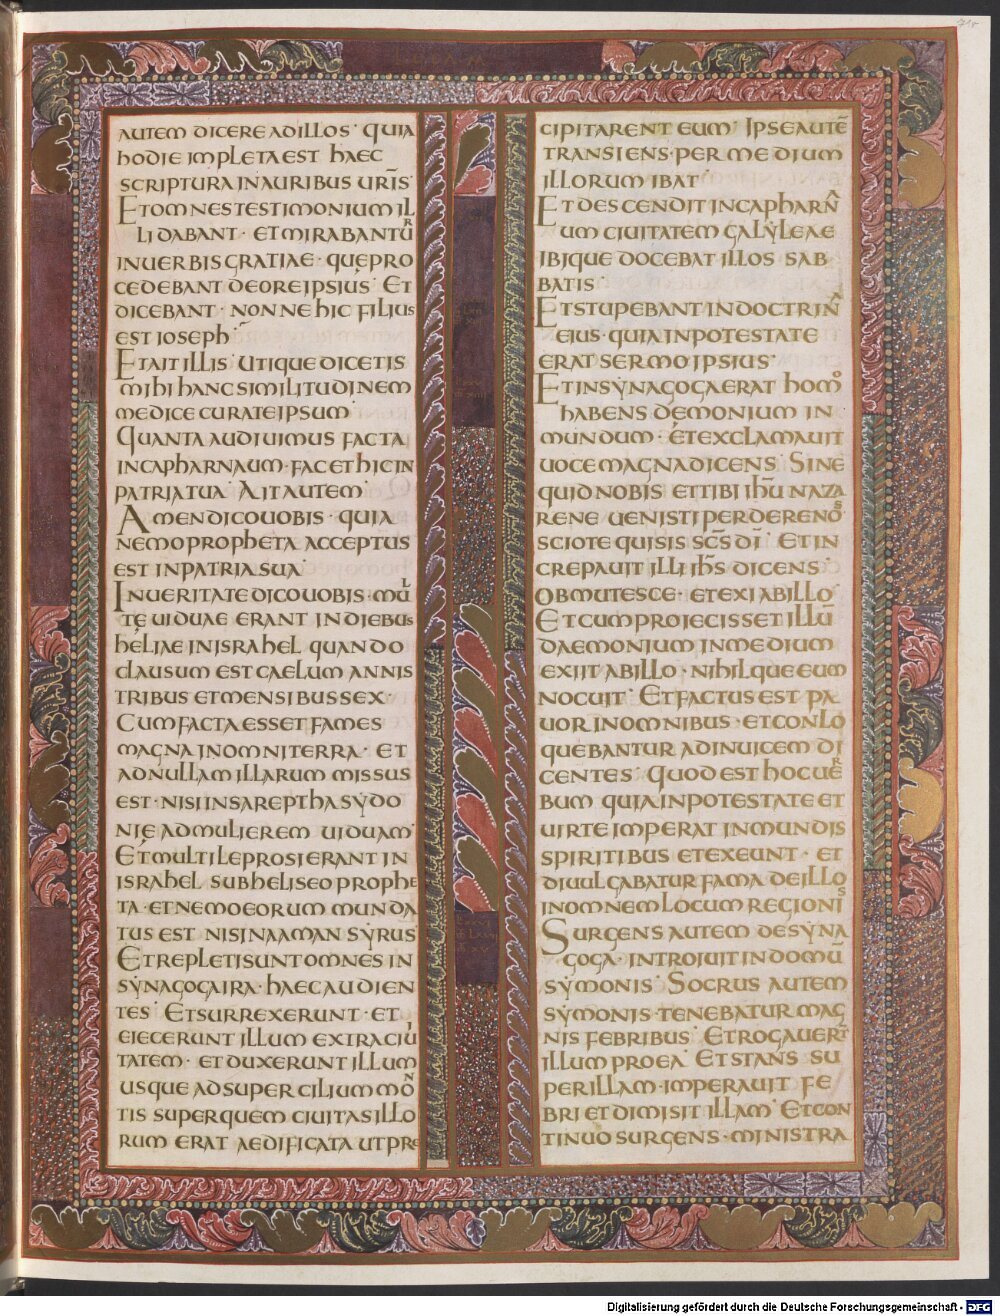 718
AUTEM DICERE AD ILLOS · QUIA
HODIE IMPLETA EST HAEC
SCRIPTURA IN AURIBUS URĪS·
ET OMNES TESTIMONIUM IL
LI DABANT · ET MIRABANTUR
IN UERBIS GRATIAE · QUĘ PRO
CEDEBANT DE ORE IPSIUS · ET
DICEBANT · NONNE HIC FILIUS
EST IOSEPH·
ET AIT ILLIS · UTIQUE DICETIS
MIHI HANC SIMILITUDINEM
MEDICE CURA TEIPSUM·
QUANTA AUDIUIMUS FACTA
IN CAPHARNAUM · FAC ET HIC IN
PATRIA TUA · AIT AUTEM·
AMEN DICO UOBIS · QUIA
NEMO PROPHETA ACCEPTUS
EST IN PATRIA SUA·
IN UERITATE DICO UOBIS · MUL
TĘ UIDUAE ERANT IN DIEBUS
HELIAE IN ISRAHEL QUANDO
CLAUSUM EST CAELUM ANNIS
TRIBUS ET MENSIBUS SEX·
CUM FACTA ESSET FAMES
MAGNA IN OMNI TERRA · ET
AD NULLAM ILLARUM MISSUS
EST · NISI IN SAREPTHA SYDO
NIĘ AD MULIEREM UIDUAM·
ET MULTI LEPROSI ERANT IN
ISRAHEL SUB HELISEO PROPHE
TA · ET NEMO EORUM MUNDA
TUS EST NISI NAAMAN SYRUS
ET REPLETI SUNT OMNES IN
SYNAGOGA IRA · HAEC AUDIEN
TES · ET SURREXERUNT · ET
EIECERUNT ILLUM EXTRA CIUI
TATEM · ET DUXERUNT ILLUM
USQUE AD SUPERCILIUM MON
TIS SUPER QUEM CIUITAS ILLO
RUM ERAT AEDIFICATA UT PRE
CIPITARENT EUM · IPSE AUTĒ
TRANSIENS · PER MEDIUM
ILLORUM IBAT·
ET DESCENDIT IN CAPHARNA
UM CIUITATEM GALYLEAE
IBIQUE DOCEBAT ILLOS SAB
BATIS·
ET STUPEBANT IN DOCTRINA
EIUS · QUIA IN POTESTATE
ERAT SERMO IPSIUS·
ET IN SYNAGOGA ERAT HOMO
HABENS DĘMONIUM IN
MUNDUM · ET EXCLAMAUIT
UOCE MAGNA DICENS · SINE
QUID NOBIS ET TIBI IHŪ NAZA
RENE UENISTI PERDERE NOS
SCIO TE QUI SIS SC̄S DĪ · ET IN
CREPAUIT ILLI IH̄S DICENS·
OBMUTESCE · ET EXI AB ILLO·
ET CUM PROIECISSET ILLŪ
DAEMONIUM IN MEDIUM
EXIIT AB ILLO · NIHILQUE EUM
NOCUIT · ET FACTUS EST PA
UOR IN OMNIBUS · ET CONLO
QUEBANTUR AD INUICEM DI
CENTES · QUOD EST HOC UER
BUM QUIA IN POTESTATE ET
UIRTE IMPERAT INMUNDIS
SPIRITIBUS ET EXEUNT · ET
DIUULGABATUR FAMA DE ILLO
IN OMNEM LOCUM REGIONIS
SURGENS AUTEM DE SYNA
GOGA · INTROIUIT IN DOMŪ
SYMONIS · SOCRUS AUTEM
SYMONIS · TENEBATUR MAG
NIS FEBRIBUS · ET ROGAUERT̄
ILLUM PRO EA · ET STANS SU
PER ILLAM · IMPERAUIT FE
BRI ET DIMISIT ILLAM · ET CON
TINUO SURGENS · MINISTRA
Digitalisierung gefördert durch die Deutsche Forschungsgemeinschaft - DFG